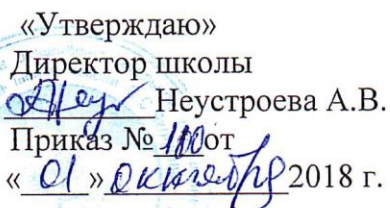 «Утверждаю»
Директор школы
Неустроева А.В.
Приказ № 100 от
«01» октября 2018 г.